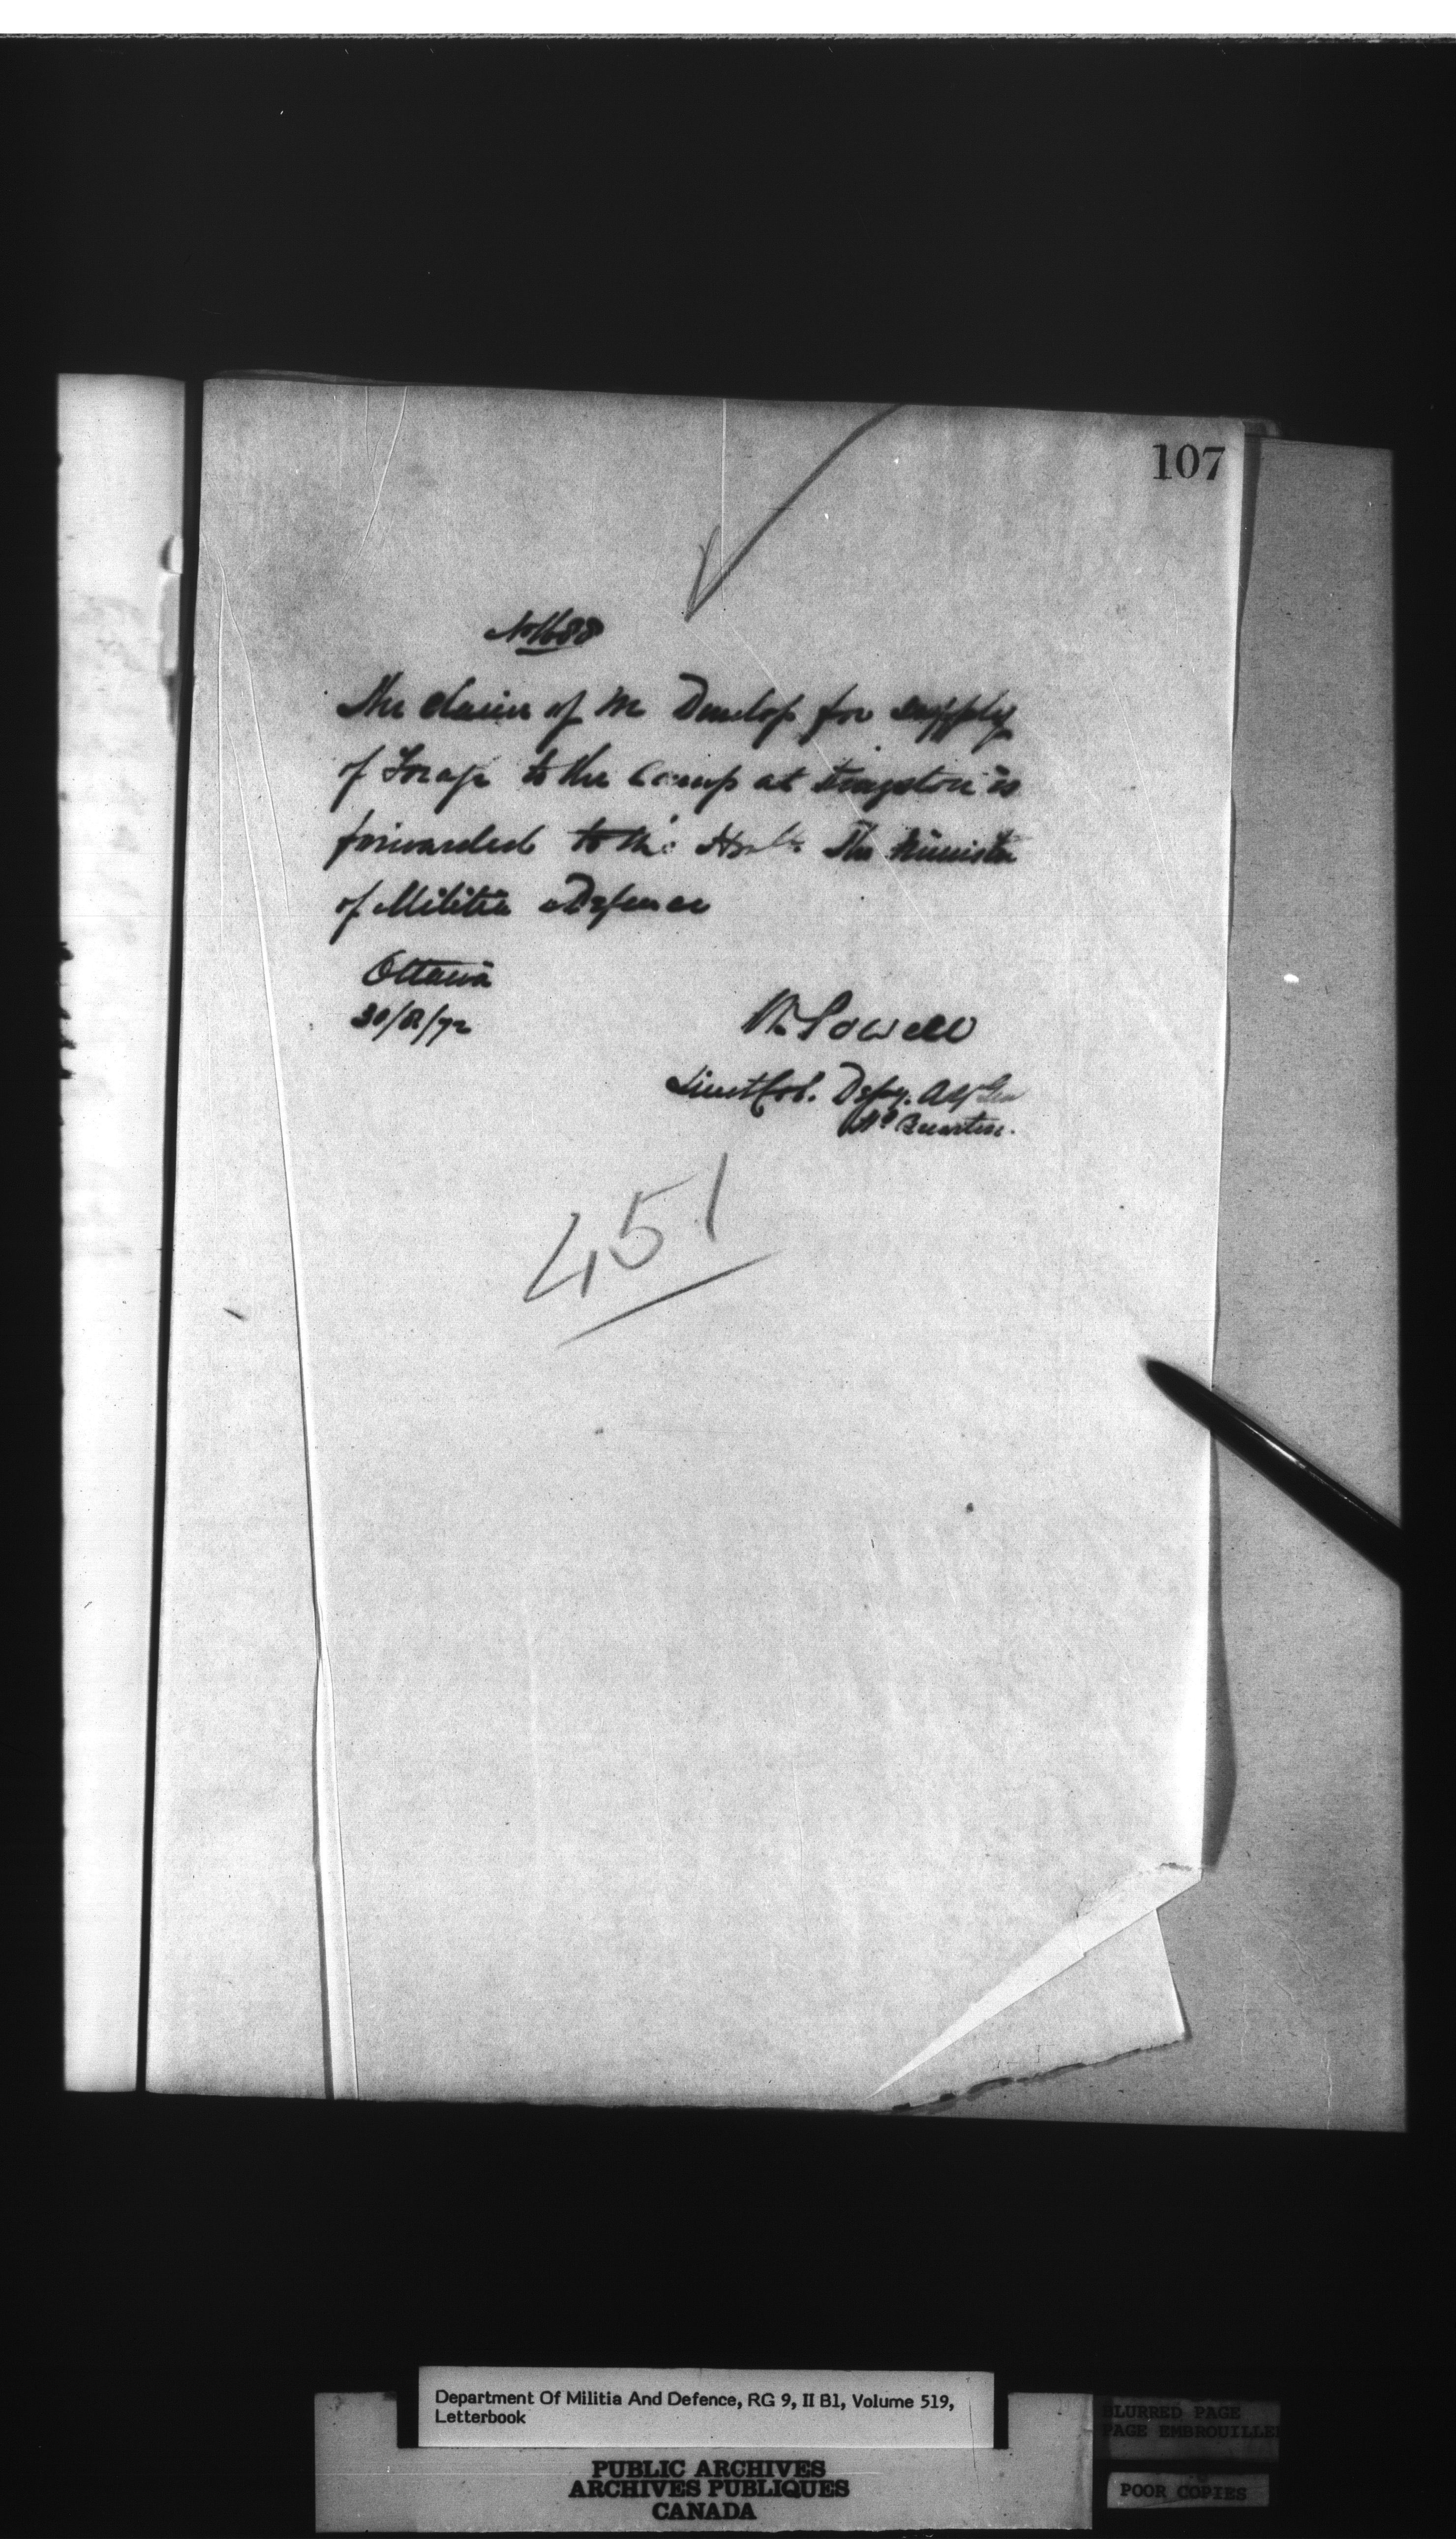 107
No 1688
The claim of Mr Dunlop for supply
of Forage to the Camp at Kingston is
forwarded to the Honble The Minister
of Militia & Defence
Ottawa
30/8/72
W. Powell
Lieut Col. Depy. Adj Gen
Hd Quarters.
451
Department Of Militia And Defence, RG 9, II B1, Volume 519,
Letterbook
BLURRED PAGE
PAGE EMBROUILLEE
PUBLIC ARCHIVES
ARCHIVES PUBLIQUES
CANADA
POOR COPIES